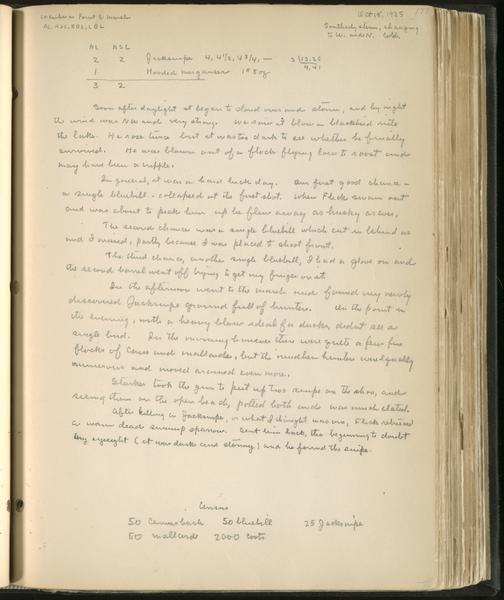 Oct 18, 1925
Point & Marsh
AL, ASL,
Southerly storm, changing
S.W. and N. Cold
AL ASL
2 2 Jacksnipe 4, 4½, 4¾, — 3 |13.25
1 Hooded merganser 1# 5oz 4.41
3 2
Soon after daylight it began to cloud over and storm, and by night
the wind was NW and very strong. We saw it blow a blackbird into
the lake. He rose twice but it was too dark to see whether he finally
survived. He was blown out of a flock flying low to roost and
may have been a cripple.
In general, it was a hard luck day. Our first good chance -
a single bluebill - collapsed at the first shot. When Flick swam out
and was about to pick him up he flew away as husky as ever.
The second chance was a single bluebill which cut in behind us
and I missed, partly because I was placed to shoot front.
The third chance, another single bluebill, I had a glove on and
the second barrel went off trying to get my finger in it.
In the afternoon went to the marsh and found my newly
discovered Jacksnipe ground full of hunters. On the point in
the evening, with a heavy blow ideal for ducks, didnt see a
single bird. In the morning however there were quite a few fine
flocks of Cans and mallards, but the mudhen hunters were equally
numerous and moved around even more.
Starker took the gun to put up two snipe on the shore, and
seeing them on the open beach, potted both and was much elated.
After killing a Jacksnipe, or what I thought was one, Flick retrieved
a warm dead swamp sparrow. Sent him back, tho beginning to doubt
my eyesight (it was dusk and stormy) and he found the snipe.
Census
50 Canvasback 50 bluebill 25 Jacksnipe
50 mallard 2000 coots